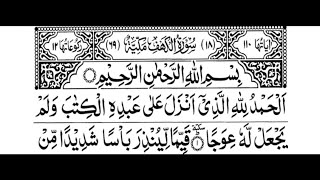 اٰيَاتُهَا ١١٠ (١٨) سُوْرَةُ الْكَهْفِ مَكِّيَّةٌ (٦٩) رُكُوْعَاتُهَا ١٢
بِسْمِ اللّٰهِ الرَّحْمٰنِ الرَّحِيْمِ
اَلْحَمْدُ لِلّٰهِ الَّذِيْٓ اَنْزَلَ عَلٰى عَبْدِهِ الْكِتٰبَ وَلَمْ
يَجْعَلْ لَّهٗ عِوَجًا ١ قَيِّمًا لِّيُنْذِرَ بَاْسًا شَدِيْدًا مِّنْ